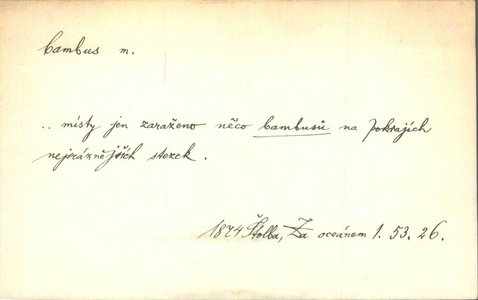 bambus m.
.. místy jen zaraženo něco bambusů na pokrajích
stezek.
1874 Štolba, Za oceánem 1. 53. 26.